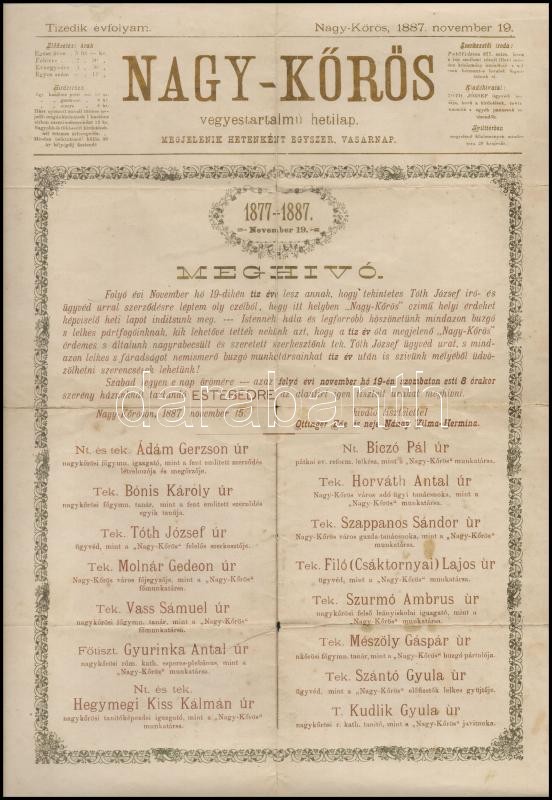 Tizedik évfolyam.
Nagy-Kőrös, 1887. november 19.
Előfizetési árak
Hirdetések
NAGY-KŐRÖS
vegyestartalmu hetilap.
MEGJELENIK HETENKÉNT EGYSZER, VASÁRNAP.
Szerkesztői iroda:
Kiadóhivatal:
Nyilttérben
1877--1887.
November 19.
MEGHIVÓ.
Folyó évi November hó 19-dikén tiz éve lesz annak, hogy tekintetes Tóth József iró- és
ügyvéd urral szerződésre léptem oly czélból, hegy itt helyben „Nagy-Kőrös" czimű helyi érdeket
képviselő heti lapot inditsunk meg. — Istennek hála és legforróbb köszönetünk mindazon buzgó
s lelkes pártfogóinknak, kik lehetővé tették nekünk azt, hogy a tiz év óta megjelenő „Nagy-Kőrös"
érdemes s általunk nagyrabecsült és szeretett szerkesztőnk tek. Tóth József ügyvéd urat, s mind-
azon lelkes s fáradságot nemismerő buzgó munkatársainkat tiz év után is szivünk mélyéből üdvö-
zölhetni szerencsések lehetünk!
Szabad legyen e nap örömére — azaz folyó évi november hó 19-én szombaton esti 8 órakor
szerény házunknál tartandó ESTEBÉDRE az alantirt igen tisztelt urakat meghivni.
Nagy-Kőrösön, 1887. november 15.
kiváló tisztelettel
Ottinger Ede és neje Nánay Vilma-Hermina.
Nt. és tek. Ádám Gerzson úr
nagykőrösi főgymn. igazgató, mint a fent emlitett szerződés
létrehozója és megőrzője.
Tek. Bónis Károly úr
nagykőrösi főgymn. tanár, mint a fent emlitett szerződés
egyik tanúja.
Tek. Tóth József úr
ügyvéd, mint a „Nagy-Kőrös" felelős szerkesztője.
Tek. Molnár Gedeon úr
Nagy-Kőrös város főjegyzője, mint a „Nagy-Kőrös"
főmunkatársa.
Tek. Vass Sámuel úr
nagykőrösi főgymn. tanár, mint a „Nagy-Kőrös"
főmunkatársa.
Főtiszt. Gyurinka Antal úr
nagykőrösi róm. kath. esperes-plebánus, mint a
„Nagy-Kőrös" munkatársa.
Nt. és tek.
Hegymegi Kiss Kálmán úr
nagykőrösi tanitóképezdei igazgató, mint a „Nagy-Kőrös"
munkatársa.
Nt. Biczó Pál úr
pátkai ev. reform. lelkész, mint a „Nagy-Kőrös" munkatársa.
Tek. Horváth Antal úr
Nagy-Kőrös város adó ügyi tanácsnoka, mint a
„Nagy-Kőrös" munkatársa.
Tek. Szappanos Sándor úr
Nagy-Kőrös város gazda-tanácsnoka, mint a „Nagy-Kőrös"
munkatársa.
Tek. Filó (Csáktornyai) Lajos úr
ügyvéd, mint a „Nagy-Kőrös" munkatársa.
Tek. Szurmó Ambrus úr
nagykőrösi felső leányiskolai igazgató, mint a
„Nagy-Kőrös" munkatársa.
Tek. Mészöly Gáspár úr
nkőrösi főgymn. tanár, mint a „Nagy-Kőrös" buzgó pártolója.
Tek. Szántó Gyula úr
ügyvéd, mint a „Nagy-Kőrös" előfizetők lelkes gyüjtője.
T. Kudlik Gyula úr
nagykőrösi r. kath. tanitó, mint a „Nagy-Kőrös" javitnoka.
darabanth